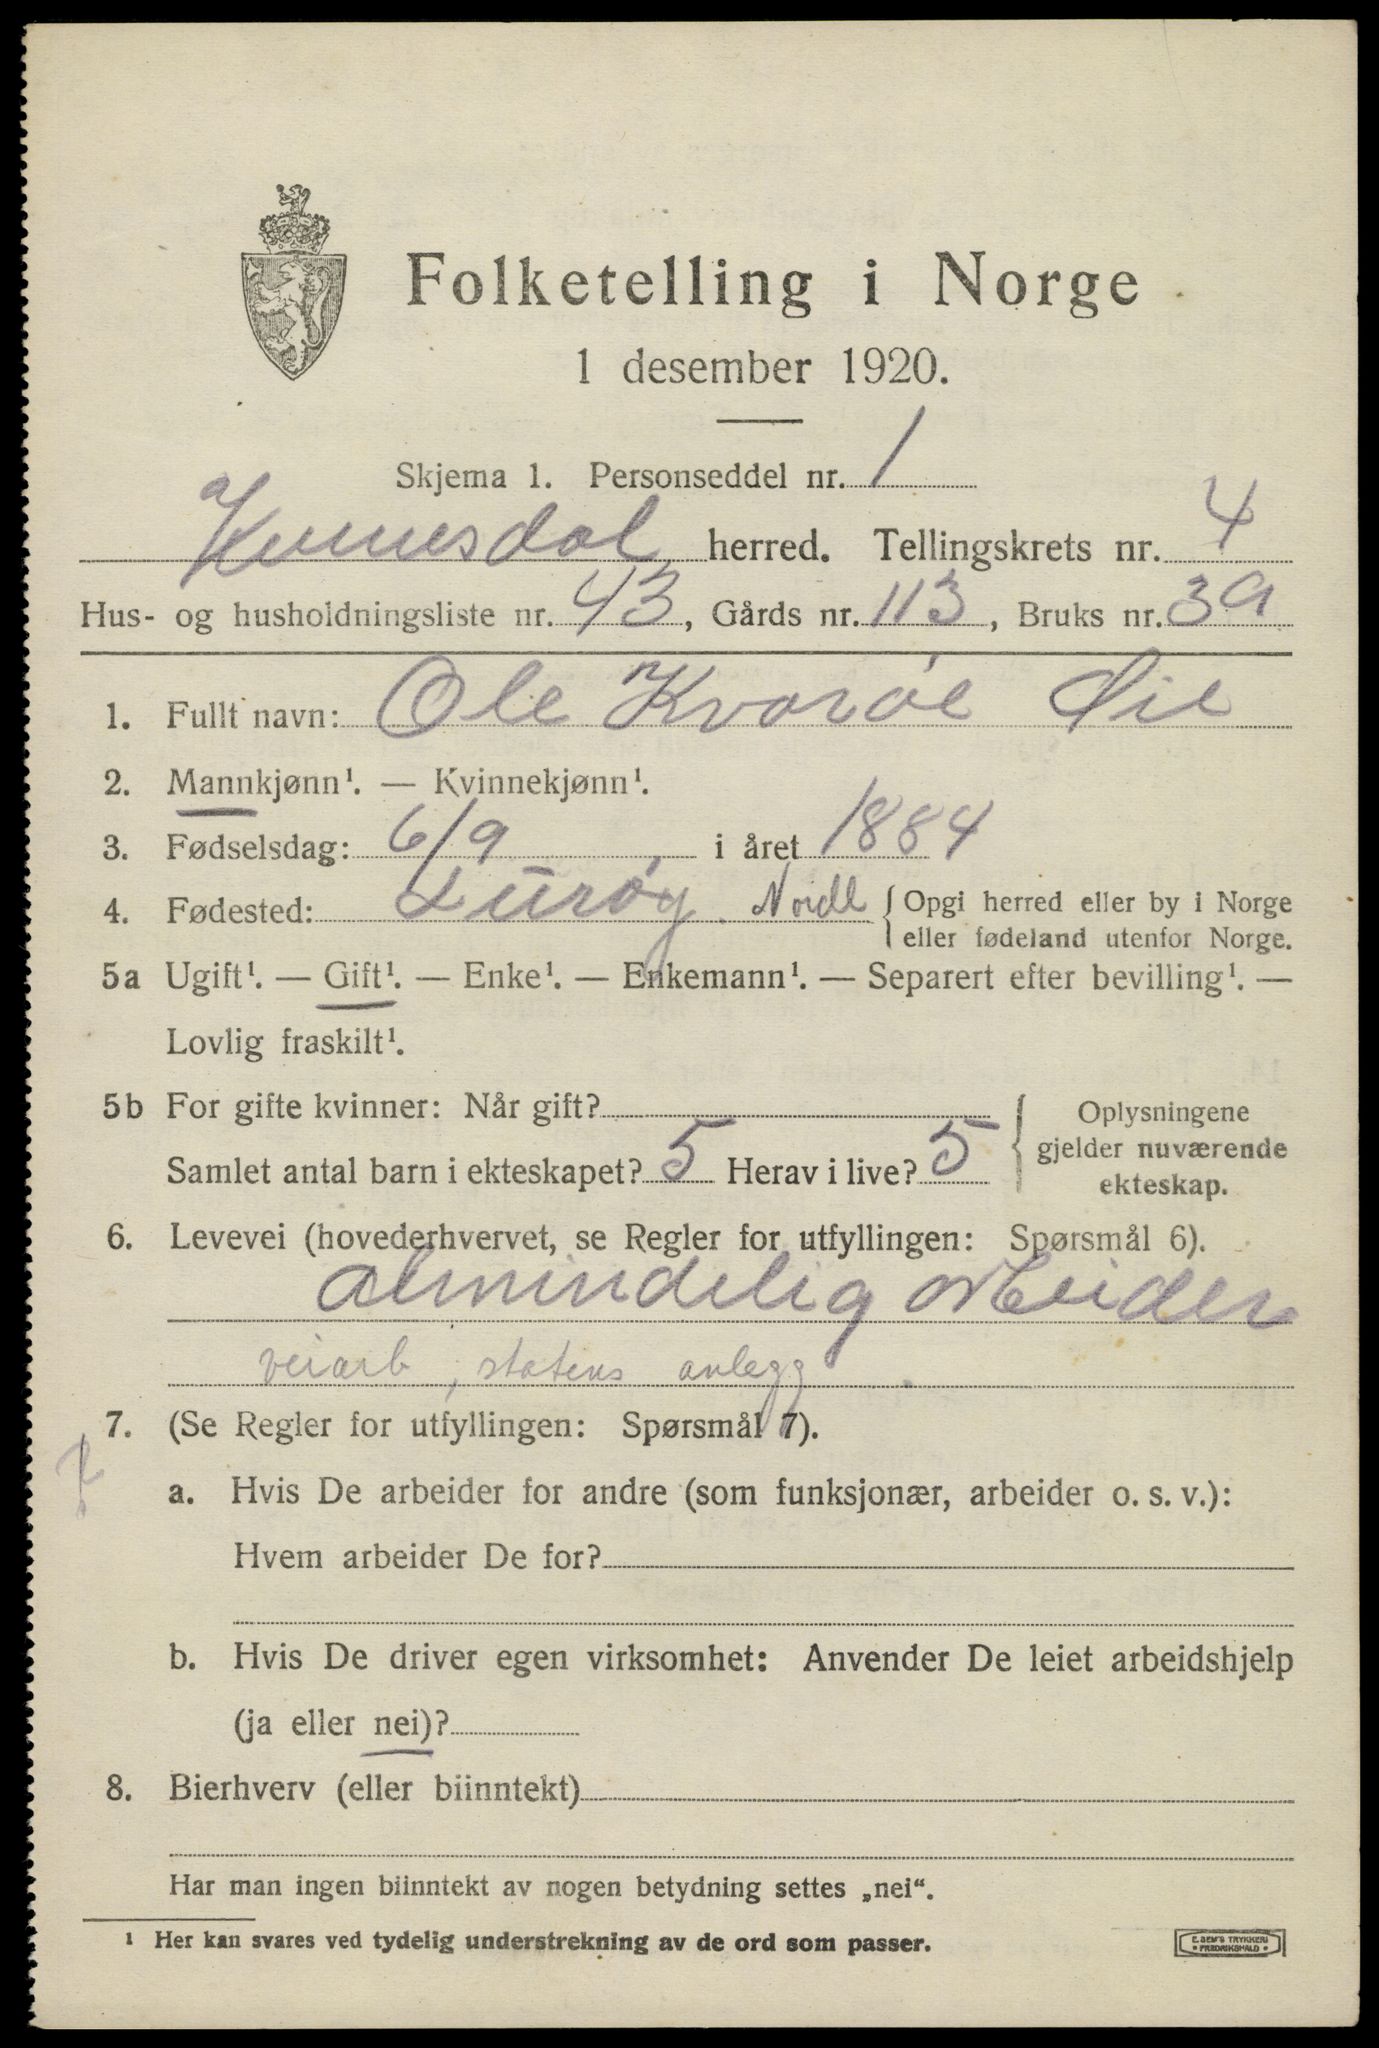 Folketelling i Norge
1 desember 1920.
Skjema 1. Personseddel nr. 1
Kvinesdal herred. Tellingskrets nr. 4
Hus- og husholdningsliste nr. 43, Gårds nr. 113, Bruks nr. 39
1. Fullt navn: Ole Kvaróe Øie
2. Mannkjønn¹. — Kvinnekjønn¹.
3. Fødselsdag: 6/9 i året 1884
4. Fødested: Lurøy Nordl { Opgi herred eller by i Norge
eller fødeland utenfor Norge.
5a Ugift¹. — Gift¹. — Enke¹. — Enkemann¹. — Separert efter bevilling¹. —
Lovlig fraskilt¹.
5b For gifte kvinner: Når gift?
Samlet antal barn i ekteskapet? 5 Herav i live? 5
{ Oplysningene
gjelder nuværende
ekteskap.
6. Levevei (hovederhvervet, se Regler for utfyllingen: Spørsmål 6).
almindelig arbeider
veiarb, statens anlegg
7. (Se Regler for utfyllingen: Spørsmål 7).
a. Hvis De arbeider for andre (som funksjonær, arbeider o. s. v.):
Hvem arbeider De for?
b. Hvis De driver egen virksomhet: Anvender De leiet arbeidshjelp
(ja eller nei)?
8. Bierhverv (eller biinntekt)
Har man ingen biinntekt av nogen betydning settes „nei“.
¹ Her kan svares ved tydelig understrekning av de ord som passer.
E. SEM'S TRYKKERI
• FREDRIKSHALD •